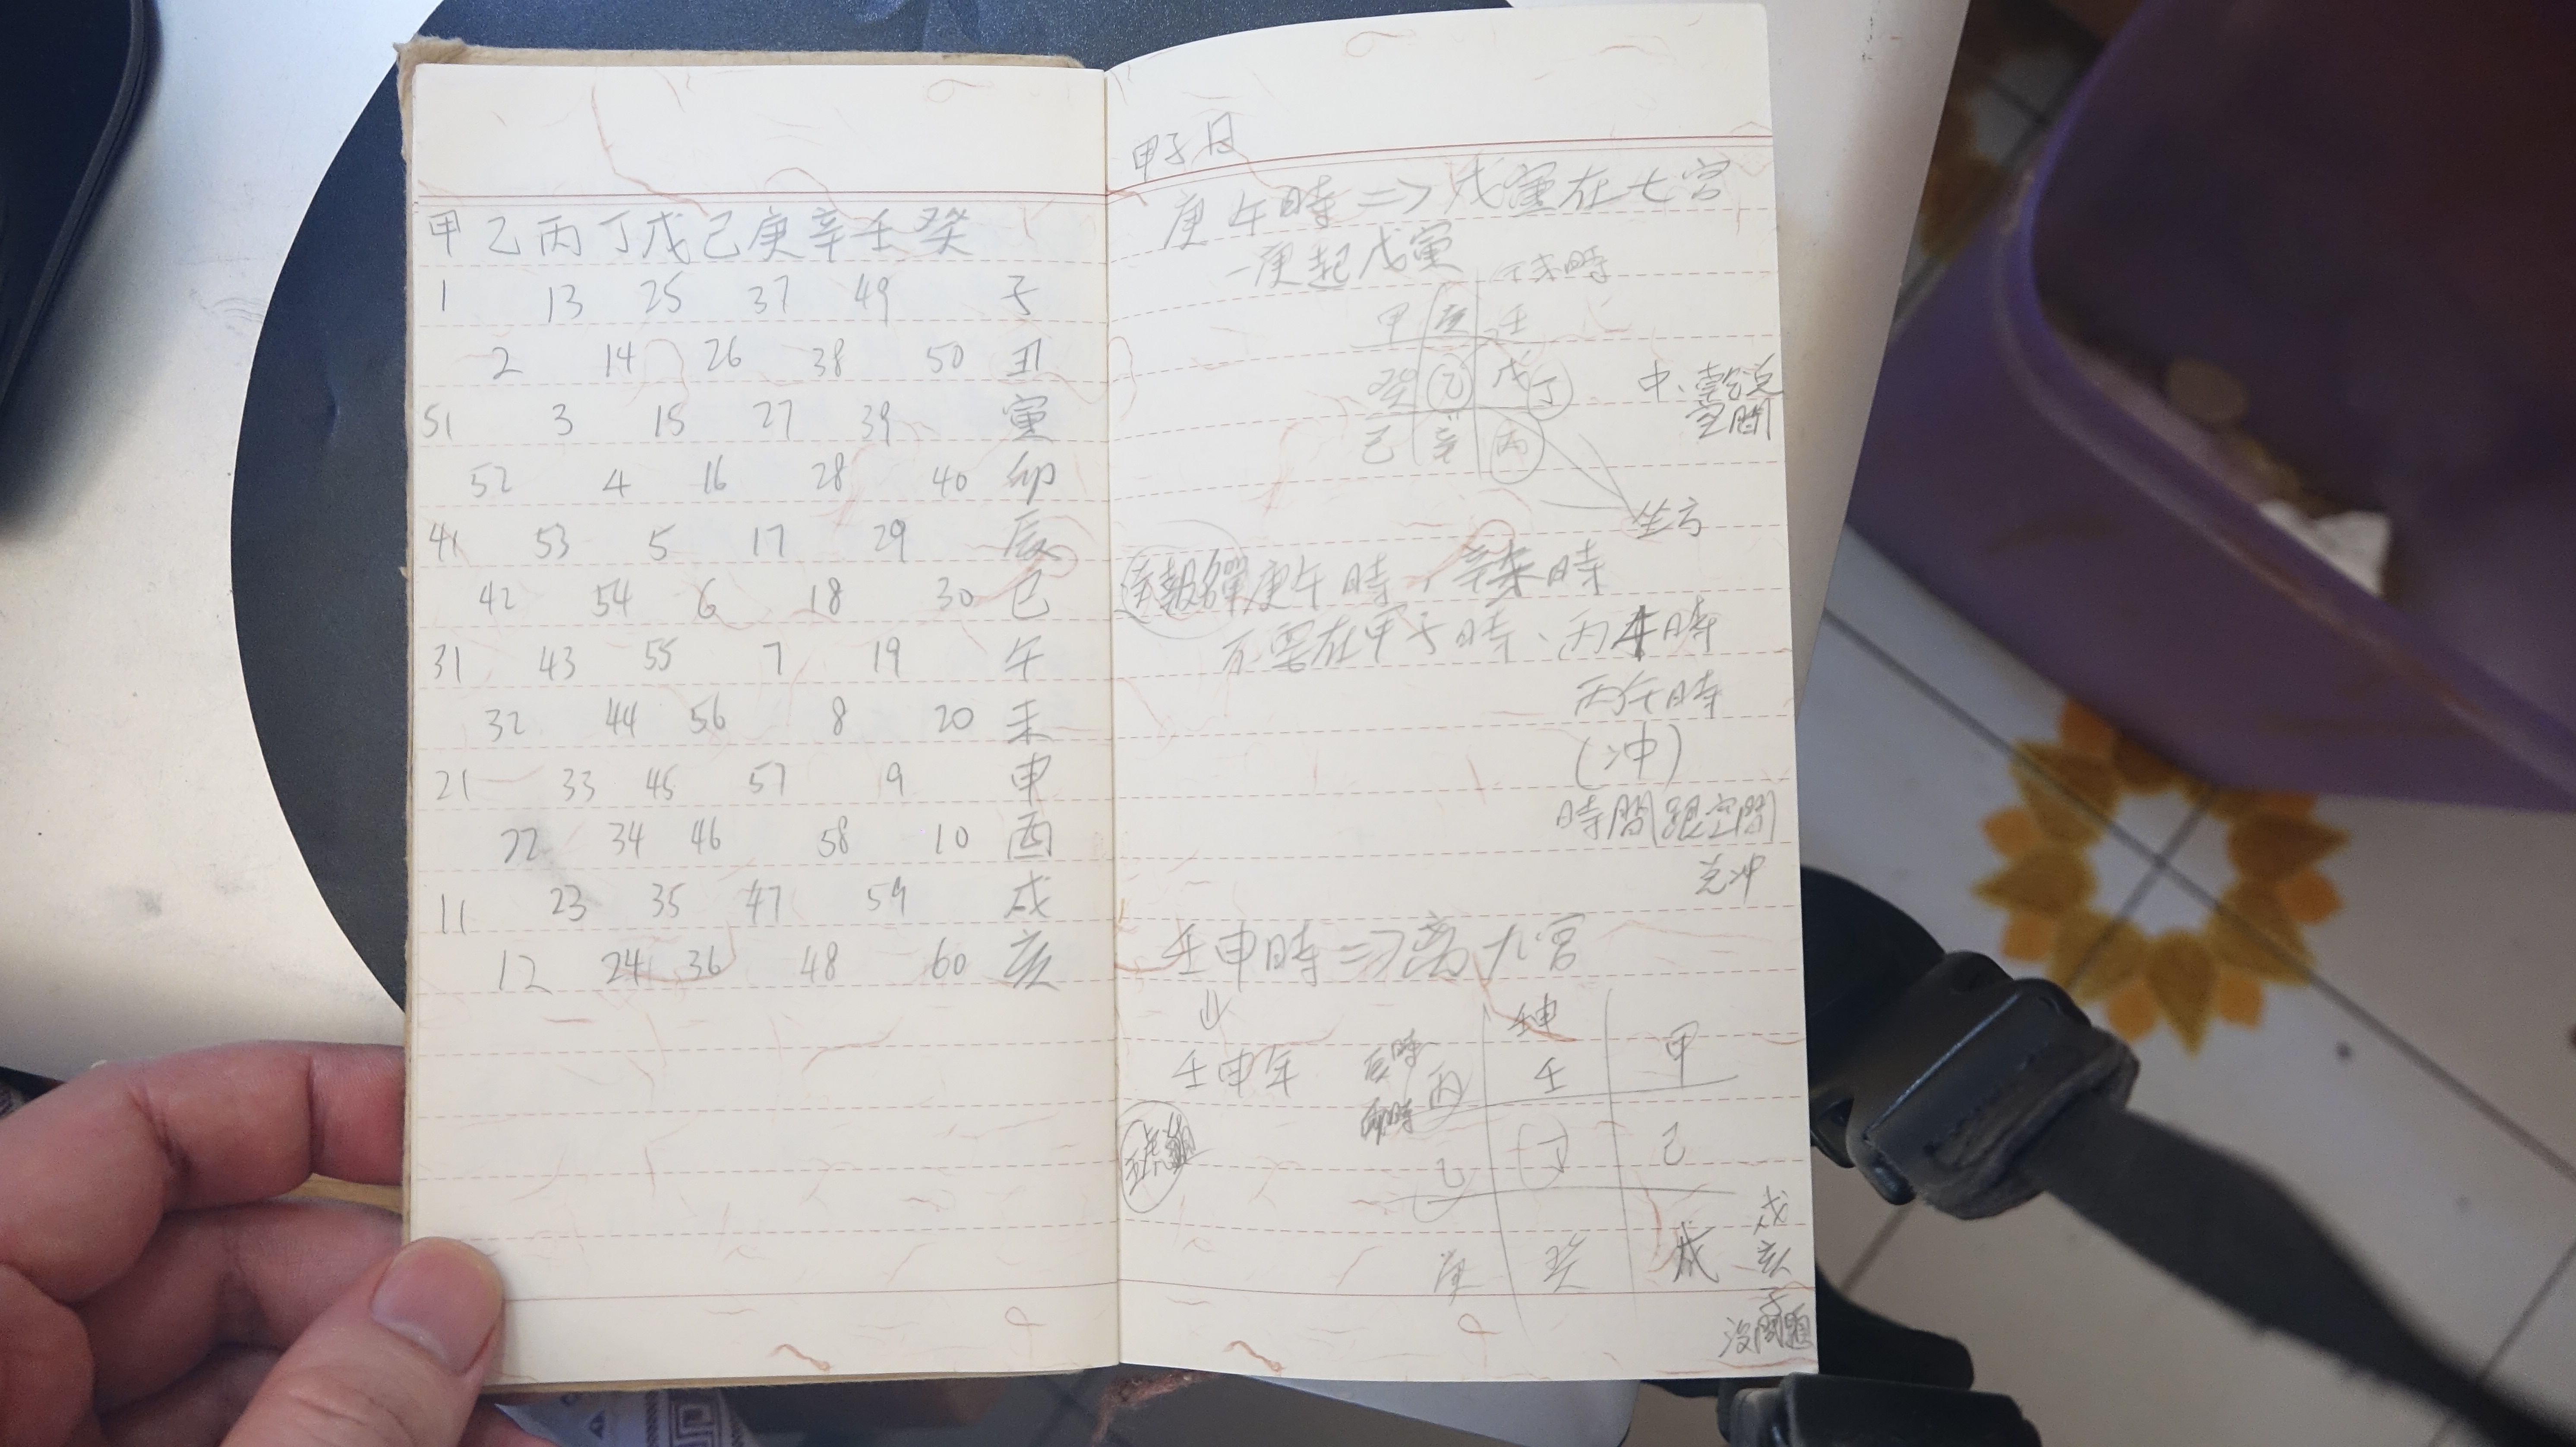 甲乙丙丁戊己庚辛壬癸
1 13 25 37 49 子
2 14 26 38 50 丑
51 3 15 27 39 寅
52 4 16 28 40 卯
41 53 5 17 29 辰
42 54 6 18 30 巳
31 43 55 7 19 午
32 44 56 8 20 未
21 33 45 57 9 申
22 34 46 58 10 酉
11 23 35 47 59 戌
12 24 36 48 60 亥
甲子日
庚午時 => 戊寅在七宮
庚起戊寅
未時
甲 庚 壬
癸 乙 戊 丁
己 辛 丙
中、
空間
坐方
庚午時、辛未時
不要在甲子時、丙午時
丙午時
(冲)
時間跟空間
克冲
壬申時 => 离九宮
壬申年
壬申
辰時 丙 壬 甲
卯時
乙 丁 己
庚 癸 戊
戌
亥
子
沒問題